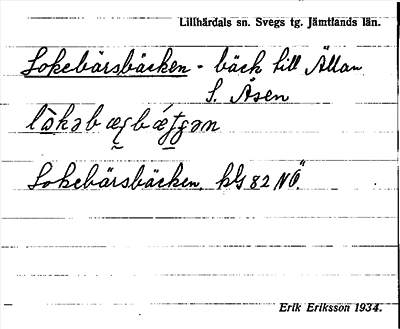 Lillhärdals sn. Svegs tg. Jämtlands län.
Lokebärsbäcken - bäck till Ällan
S. Åsen
Lokebärsbäcken, kbs 82 NÖ.
Erik Eriksson 1934.